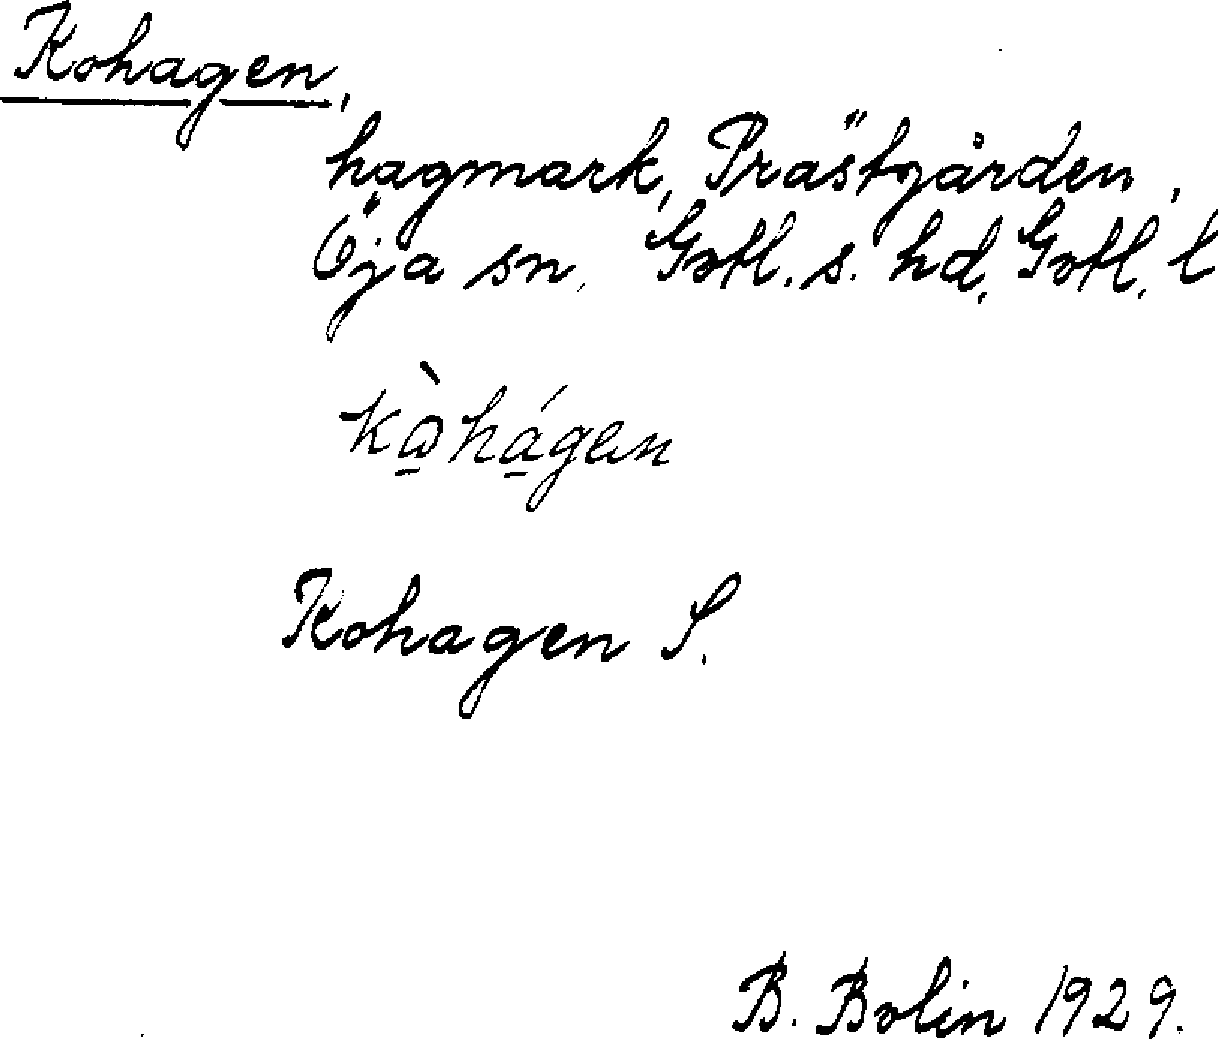 Kohagen,
hagmark, Prästgården,
Öja sn, Gotl. s. hd, Gotl. l
kòhágen
Kohagen S.
B. Bolin 1929.